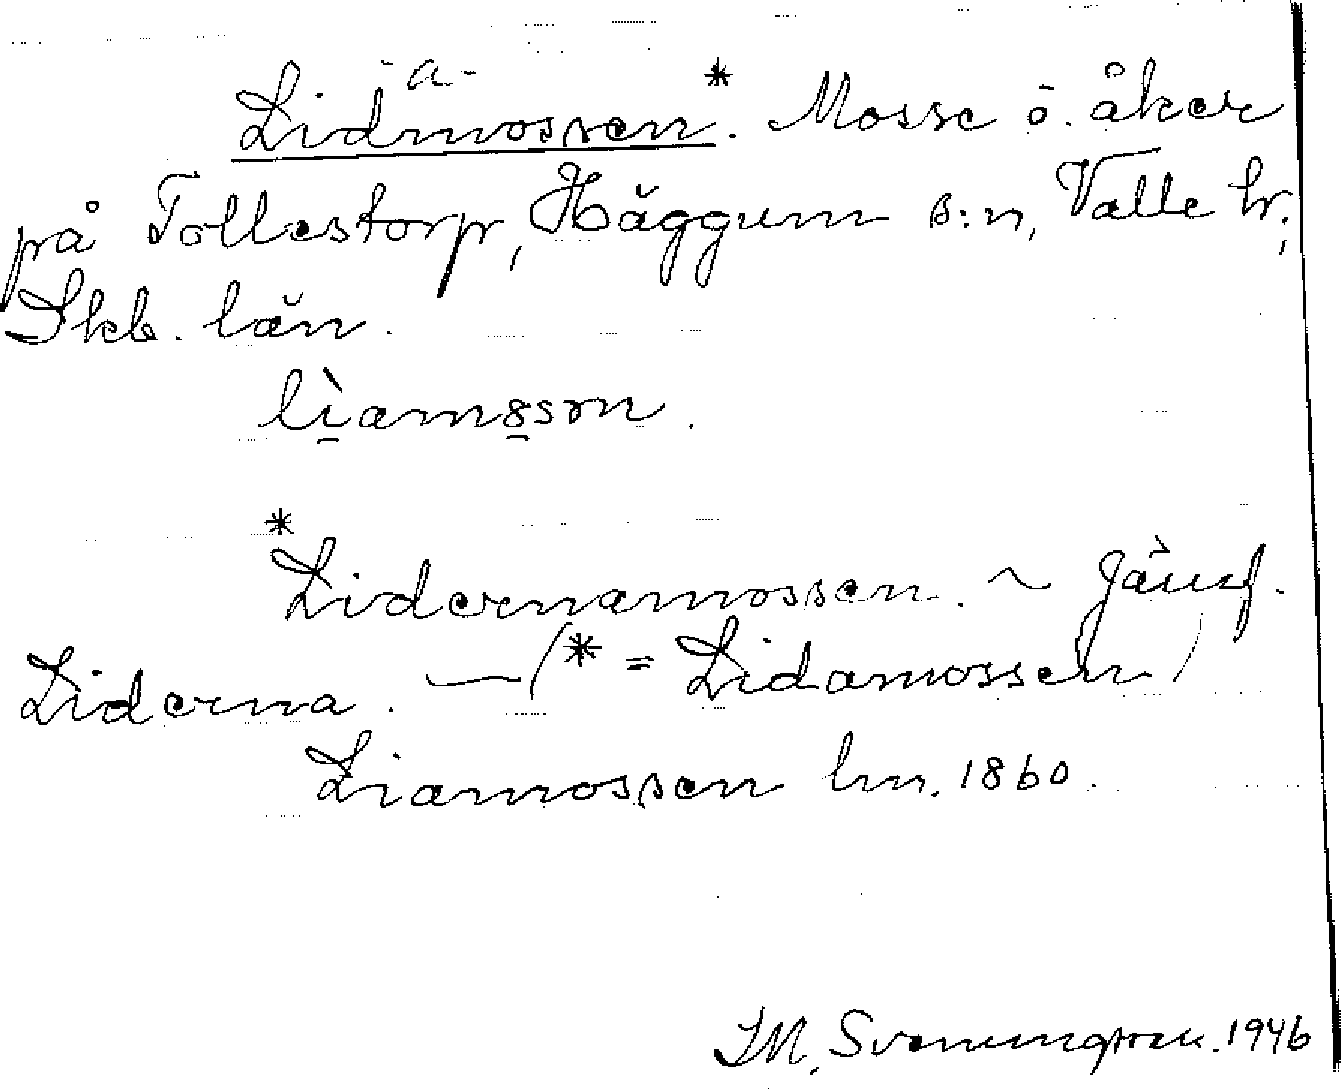 -a-
Lidmossen*. Mosse ö. åker
på Tollestorp, Häggum s:n, Valle hr,
Skb. län.
lìamssn.
*Lidernamossen. ~ Jämf.
Liderna. — (* = Lidamossen)
Liamossen lm. 1860.
IM, 1946